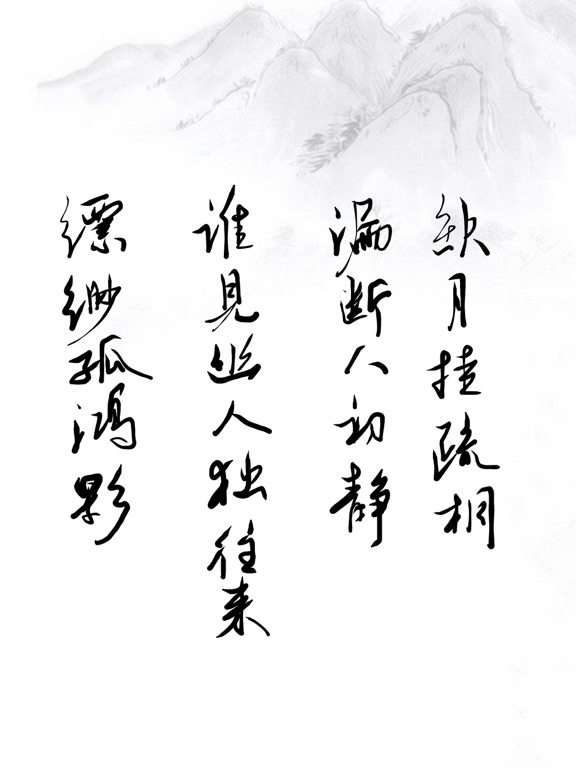 缺月挂疏桐
漏断人初静
谁见幽人独往来
缥缈孤鸿影